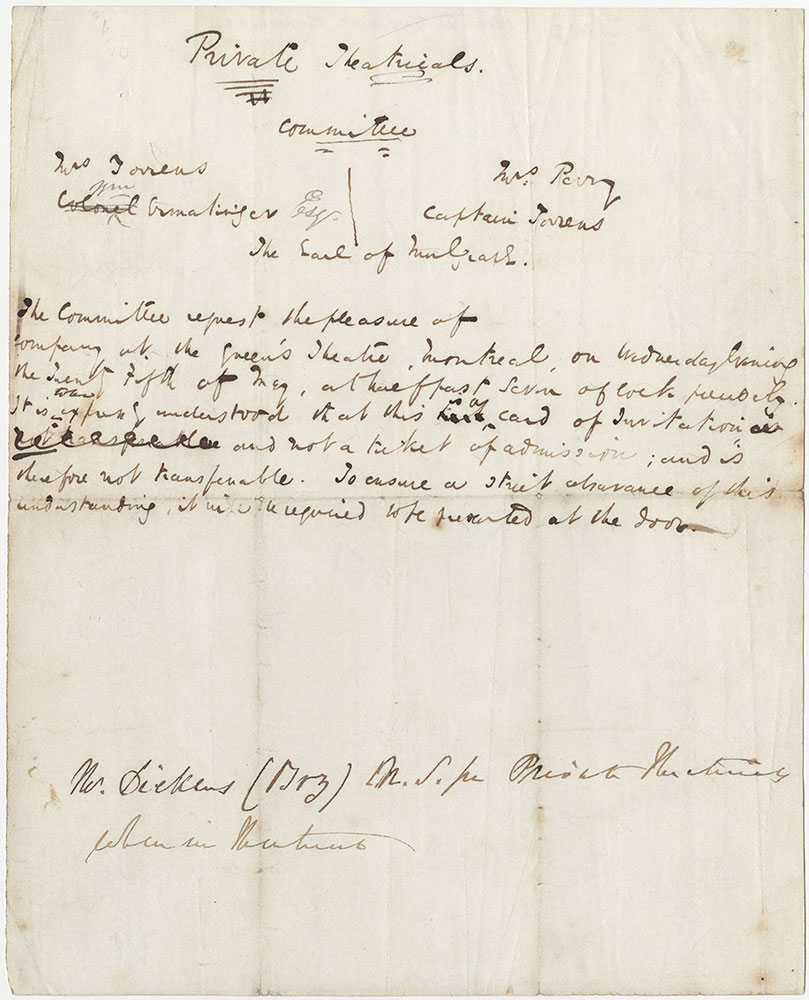 Private Theatricals.
Committee
Mrs Torrens
Mrs. Perry
Wm
Colonel Ermatinger Esqr.
Captain Torrens
The Earl of Mulgrave.
The Committee request the pleasure of
company at the Queen's Theatre, Montreal, on Wednesday Evening
the Twenty Fifth of May, at half past Seven o'clock precisely.
It is understood that this card of Invitation is
not transferable and not a ticket of admission; and is
therefore not transferable. To ensure a strict observance of this
understanding, it will be required to be presented at the door.
Mr. Dickens (Boz) M.S. for Private Theatricals
when in Montreal